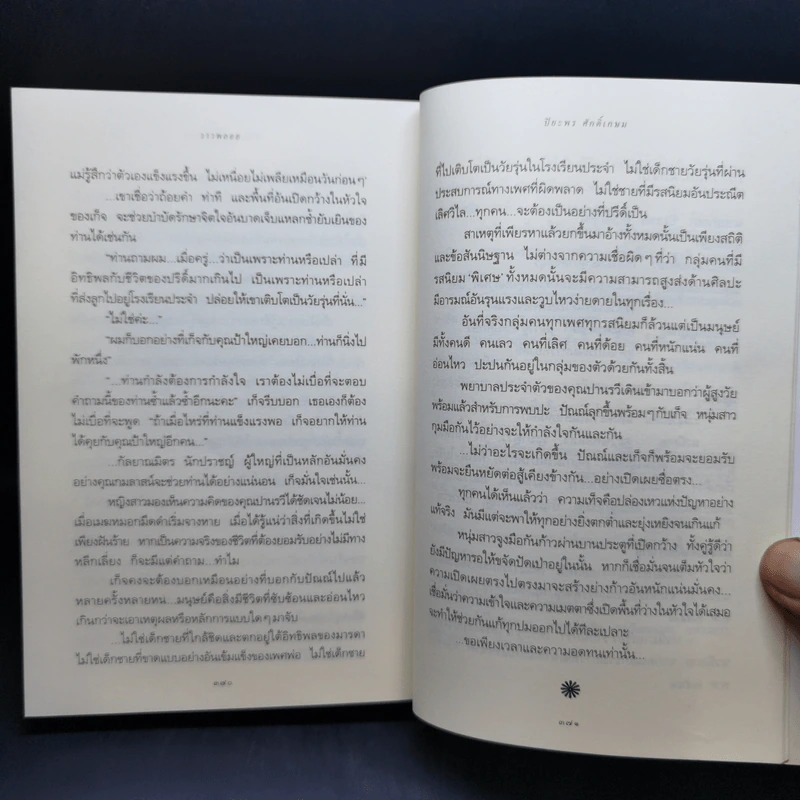 วารพลอย
แม่รู้สึกว่าตัวเองแข็งแรงขึ้น ไม่เหนื่อยไม่เพลียเหมือนวันก่อนๆ'
...เขาเชื่อว่าถ้อยคำ ท่าที และพื้นที่อันเปิดกว้างในหัวใจ
ของเก็จ จะช่วยบำบัดรักษาจิตใจอันบาดเจ็บแหลกช้ำยับเยินของ
ท่านได้เช่นกัน
"ท่านถามผม...เมื่อครู่...ว่าเป็นเพราะท่านหรือเปล่า ที่มี
อิทธิพลกับชีวิตของปรีดิ์มากเกินไป เป็นเพราะท่านหรือเปล่า
ที่ส่งลูกไปอยู่โรงเรียนประจำ ปล่อยให้เขาเติบโตเป็นวัยรุ่นที่นั่น..."
"ไม่ใช่ค่ะ..."
"ผมก็บอกอย่างที่เก็จกับคุณป้าใหญ่เคยบอก...ท่านก็นิ่งไป
พักหนึ่ง"
"...ท่านกำลังต้องการกำลังใจ เราต้องไม่เบื่อที่จะตอบ
คำถามนี้ของท่านซ้ำแล้วซ้ำอีกนะคะ" เก็จรีบบอก เธอเองก็ต้อง
ไม่เบื่อที่จะพูด "ถ้าเมื่อไหร่ที่ท่านแข็งแรงพอ เก็จอยากให้ท่าน
ได้คุยกับคุณป้าใหญ่อีกคน..."
...กัลยาณมิตร นักปราชญ์ ผู้ใหญ่ที่เป็นหลักอันมั่นคง
อย่างคุณกมลาสน์จะช่วยท่านได้อย่างแน่นอน เก็จมั่นใจเช่นนั้น...
หญิงสาวมองเห็นความคิดของคุณปานรวีได้ชัดเจนไม่น้อย...
เมื่อเมฆหมอกมืดดำเริ่มจางหาย เมื่อได้รู้แน่ว่าสิ่งที่เกิดขึ้นไม่ใช่
เพียงฝันร้าย หากเป็นความจริงของชีวิตที่ต้องยอมรับอย่างไม่มีทาง
หลีกเลี่ยง ก็จะมีแต่คำถาม...ทำไม
เก็จคงจะต้องบอกเหมือนอย่างที่บอกกับปัณณ์ไปแล้ว
หลายครั้งหลายหน...มนุษย์คือสิ่งมีชีวิตที่ซับซ้อนและอ่อนไหว
เกินกว่าจะเอาเหตุผลหรือหลักการแบบใดๆมาจับ
...ไม่ใช่เด็กชายที่ใกล้ชิดและตกอยู่ใต้อิทธิพลของมารดา
ไม่ใช่เด็กชายที่ขาดแบบอย่างอันเข้มแข็งของเพศพ่อ ไม่ใช่เด็กชาย
๓๗๐
ปิยะพร ศักดิ์เกษม
ที่ไปเติบโตเป็นวัยรุ่นในโรงเรียนประจำ ไม่ใช่เด็กชายวัยรุ่นที่ผ่าน
ประสบการณ์ทางเพศที่ผิดพลาด ไม่ใช่ชายที่มีรสนิยมอันประณีต
เลิศวิไล...ทุกคน...จะต้องเป็นอย่างที่ปรีดิ์เป็น
สาเหตุที่เพียรหาแล้วยกขึ้นมาอ้างทั้งหมดนั้นเป็นเพียงสถิติ
และข้อสันนิษฐาน ไม่ต่างจากความเชื่อผิดๆที่ว่า กลุ่มคนที่มี
รสนิยม 'พิเศษ' ทั้งหมดนั้นจะมีความสามารถสูงส่งด้านศิลปะ
มีอารมณ์อันรุนแรงและวูบไหวง่ายดายในทุกเรื่อง...
อันที่จริงกลุ่มคนทุกเพศทุกรสนิยมก็ล้วนแต่เป็นมนุษย์
มีทั้งคนดี คนเลว คนที่เลิศ คนที่ด้อย คนที่หนักแน่น คนที่
อ่อนไหว ปะปนกันอยู่ในกลุ่มของตัวด้วยกันทั้งสิ้น
พยาบาลประจำตัวของคุณปานรวีเดินเข้ามาบอกว่าผู้สูงวัย
พร้อมแล้วสำหรับการพบปะ ปัณณ์ลุกขึ้นพร้อมๆกับเก็จ หนุ่มสาว
กุมมือกันไว้อย่างจะให้กำลังใจกันและกัน
...ไม่ว่าอะไรจะเกิดขึ้น ปัณณ์และเก็จก็พร้อมจะยอมรับ
พร้อมจะยืนหยัดต่อสู้เคียงข้างกัน...อย่างเปิดเผยซื่อตรง...
ทุกคนได้เห็นแล้วว่า ความเท็จคือปล่องเหวแห่งปัญหาอย่าง
แท้จริง มันมีแต่จะพาให้ทุกอย่างยิ่งตกต่ำและยุ่งเหยิงจนเกินแก้
หนุ่มสาวจูงมือกันก้าวผ่านบานประตูที่เปิดกว้าง ทั้งคู่รู้ดีว่า
ยังมีปัญหารอให้ขจัดปัดเป่าอยู่ในนั้น หากก็เชื่อมั่นจนเต็มหัวใจว่า
ความเปิดเผยตรงไปตรงมาจะสร้างย่างก้าวอันหนักแน่นมั่นคง...
เชื่อมั่นว่าความเข้าใจและความเมตตาซึ่งเปิดพื้นที่ว่างในหัวใจได้เสมอ
จะทำให้ช่วยกันแก้ทุกปมออกไปได้ทีละเปลาะ
...ขอเพียงเวลาและความอดทนเท่านั้น...
๓๗๑